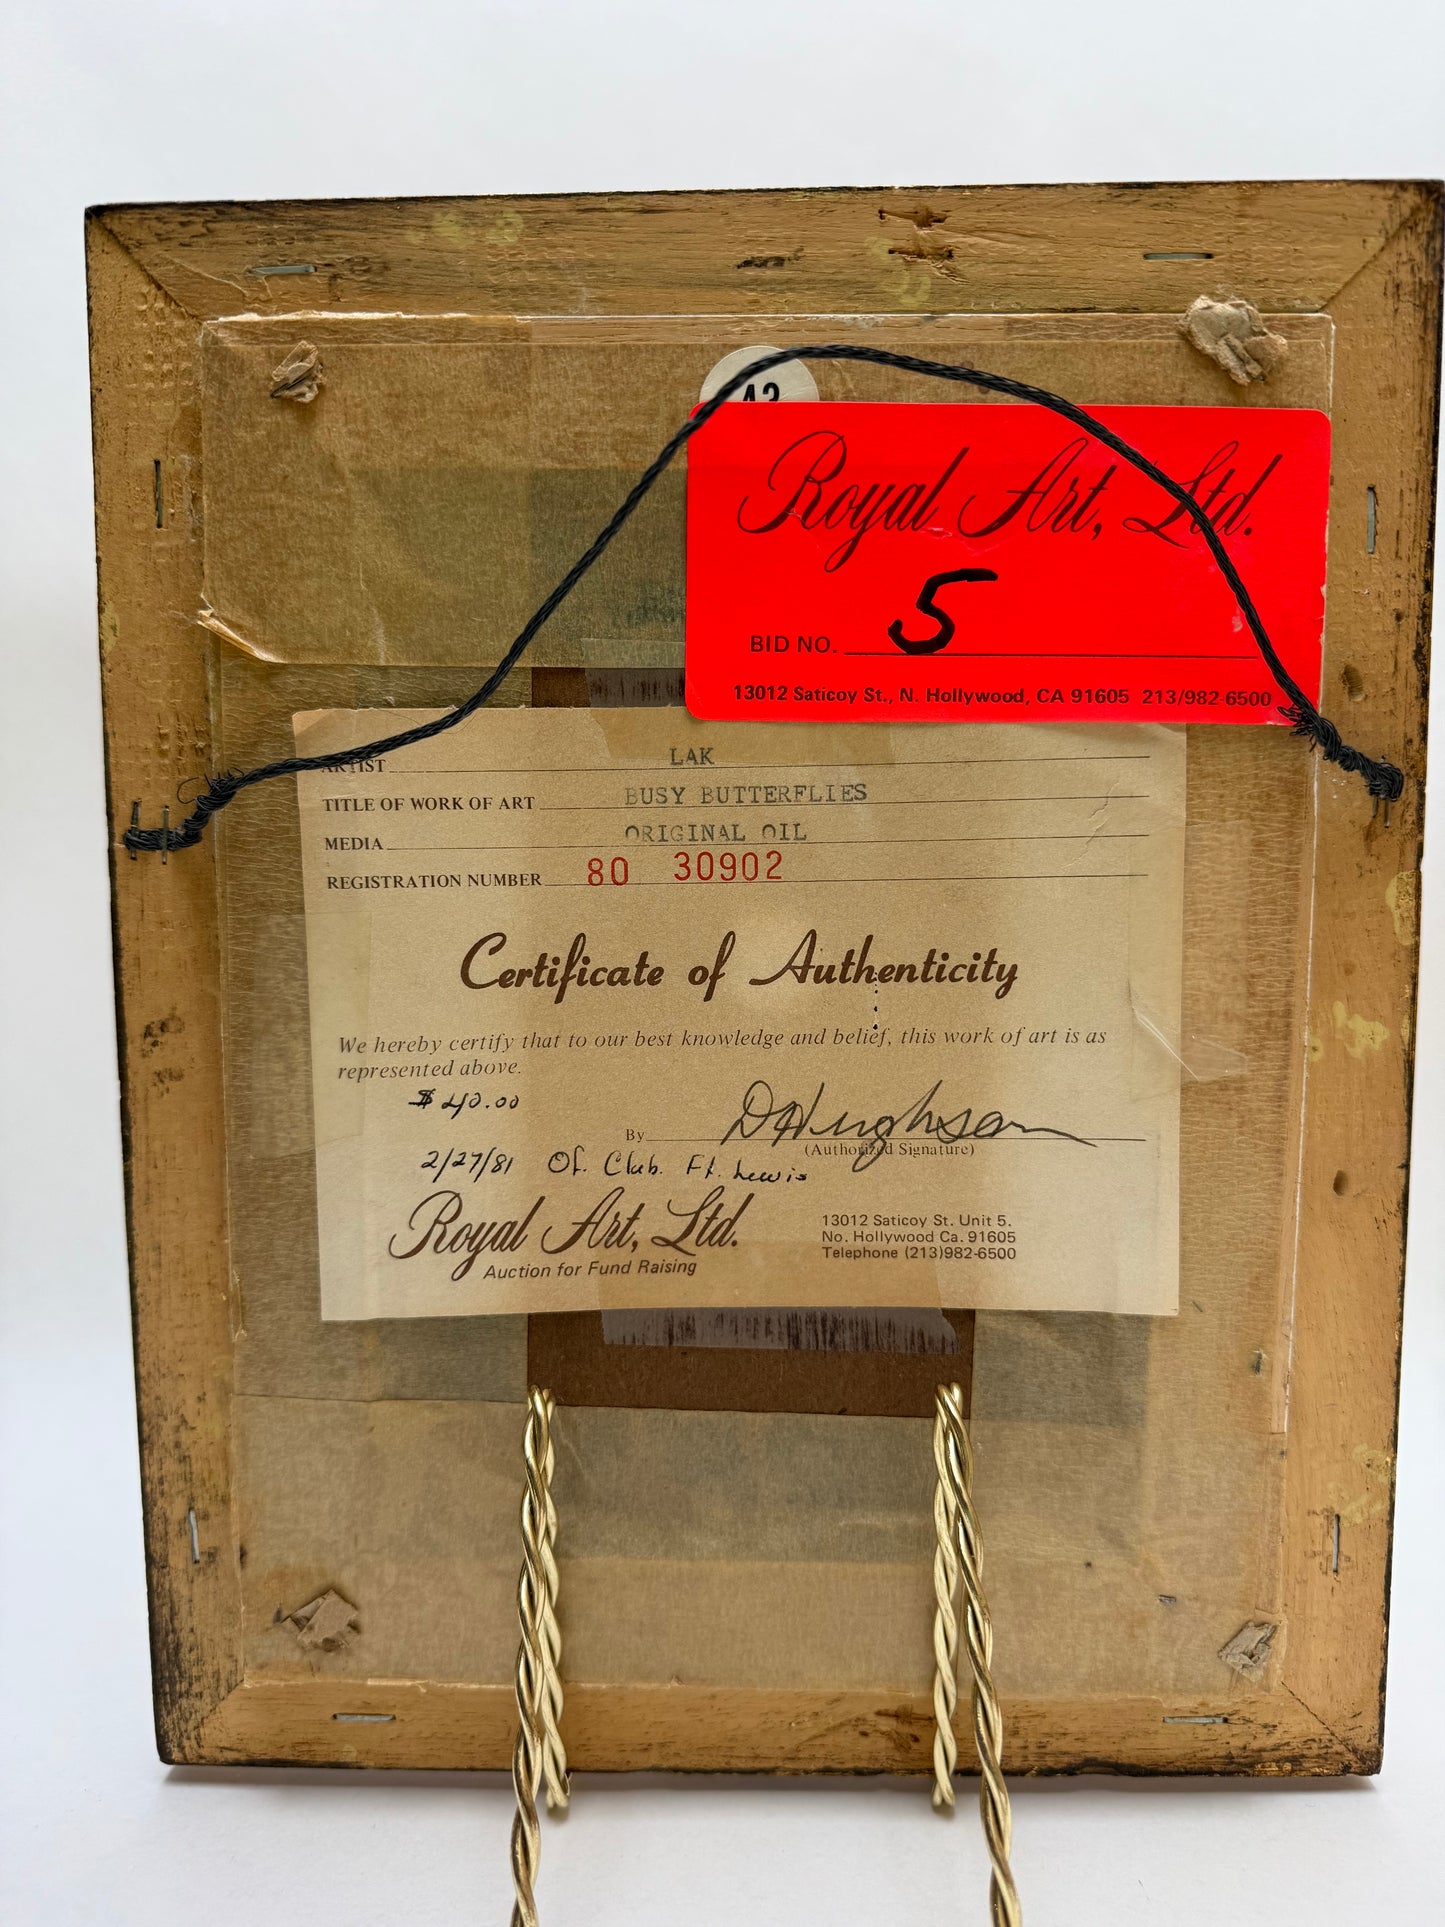 Royal Art, Ltd.
BID NO. 5
13012 Saticoy St., N. Hollywood, CA 91605 213/982-6500
ARTIST LAK
TITLE OF WORK OF ART BUSY BUTTERFLIES
MEDIA ORIGINAL OIL
REGISTRATION NUMBER 80 30902
Certificate of Authenticity
We hereby certify that to our best knowledge and belief, this work of art is as
represented above.
$40.00
By D Hughson
(Authorized Signature)
2/27/81 Of. Club. Ft. Lewis
Royal Art, Ltd.
Auction for Fund Raising
13012 Saticoy St. Unit 5.
No. Hollywood Ca. 91605
Telephone (213)982-6500